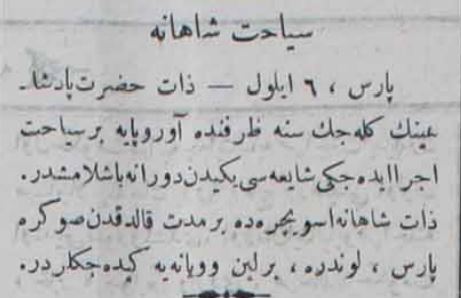 سیاحت شاهانه
پارس ، ٦ ایلول — ذات حضرت پادشا۔
هینك كله‌جك سنه ظرفنده آوروپایه برسیاحت
اجرا ایده‌جكی شایعه‌سی یكیدن دورانه باشلامشدر.
ذات شاهانه اسویچره‌ده برمدت قالدقدن صوكره
پارس ، لوندره ، برلین وویانه‌یه كیده‌جكلردر.